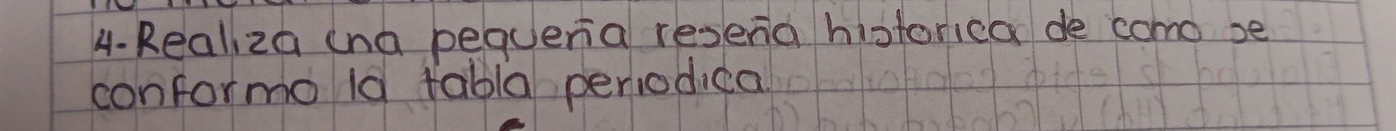 4-Realiza una pequeña reseña historica de como se
conformo la tabla periodica